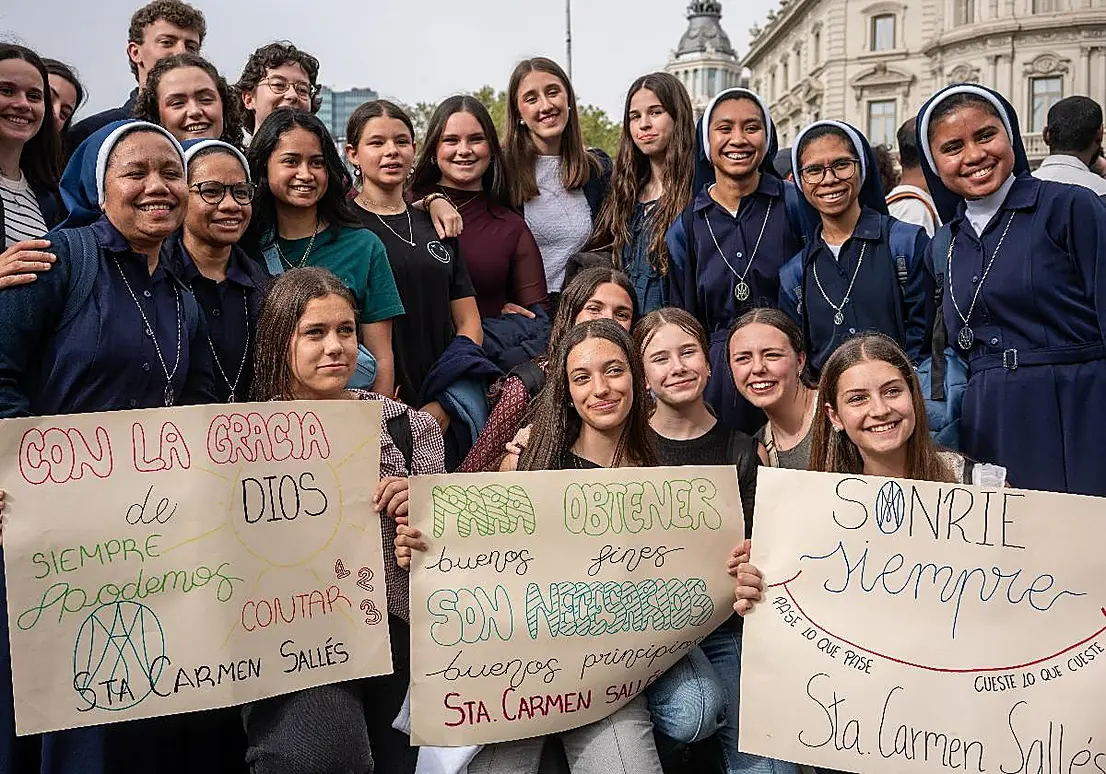 CON LA GRACIA
de DIOS
SIEMPRE
podemos
CONTAR 1 2 3
STA CARMEN SALLÉS
PARA OBTENER
buenos fines
SON NECESARIOS
buenos principios
STA. CARMEN SALLÉS
SONRIE
siempre
PASE LO QUE PASE
CUESTE LO QUE CUESTE
Sta. Carmen Sallés